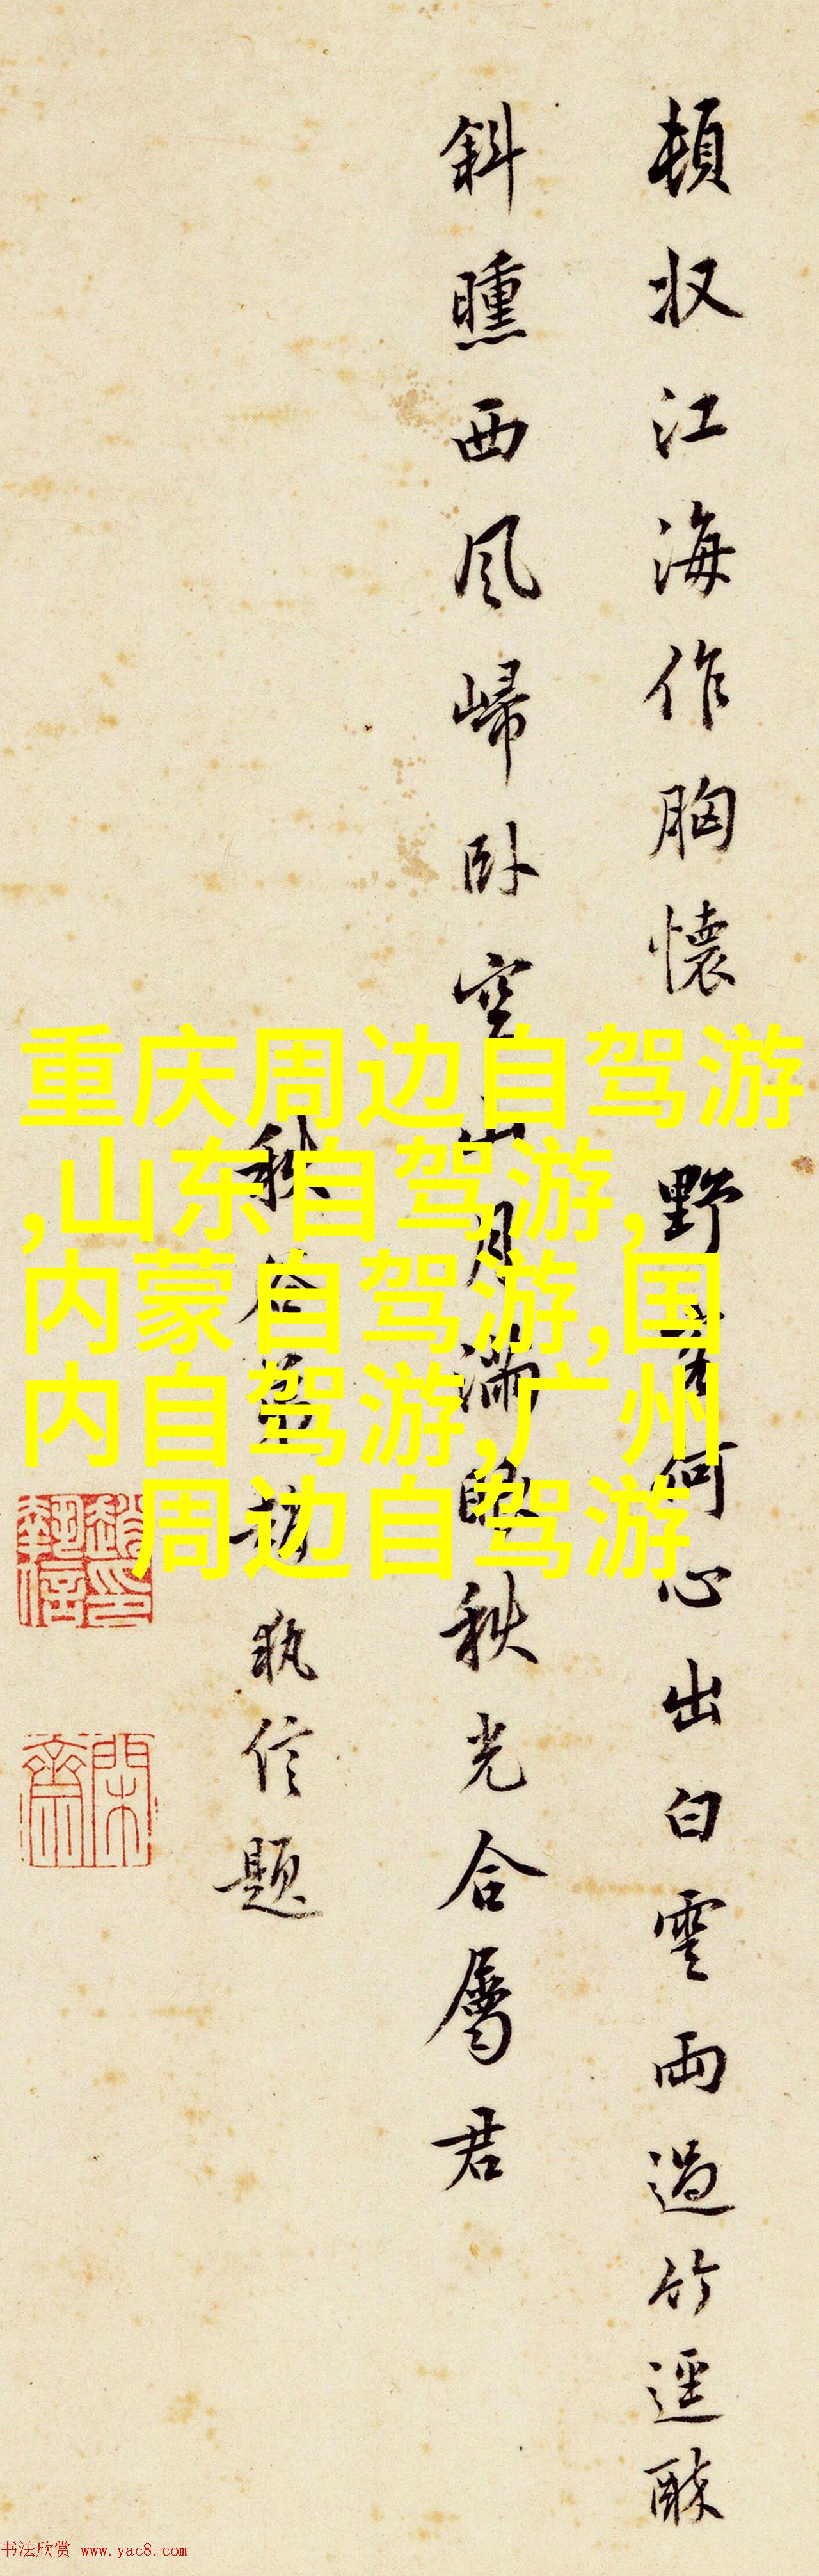 頓收江海作胸懷 野 何心出白雲雨過竹逕酴
斜曛西風歸卧空山月滿 秋光合屬君
秋谷 執信題
重庆周边自驾游
,山东自驾游,
内蒙自驾游,国
内自驾游,广州
周边自驾游
书法欣赏 www.yac8.com